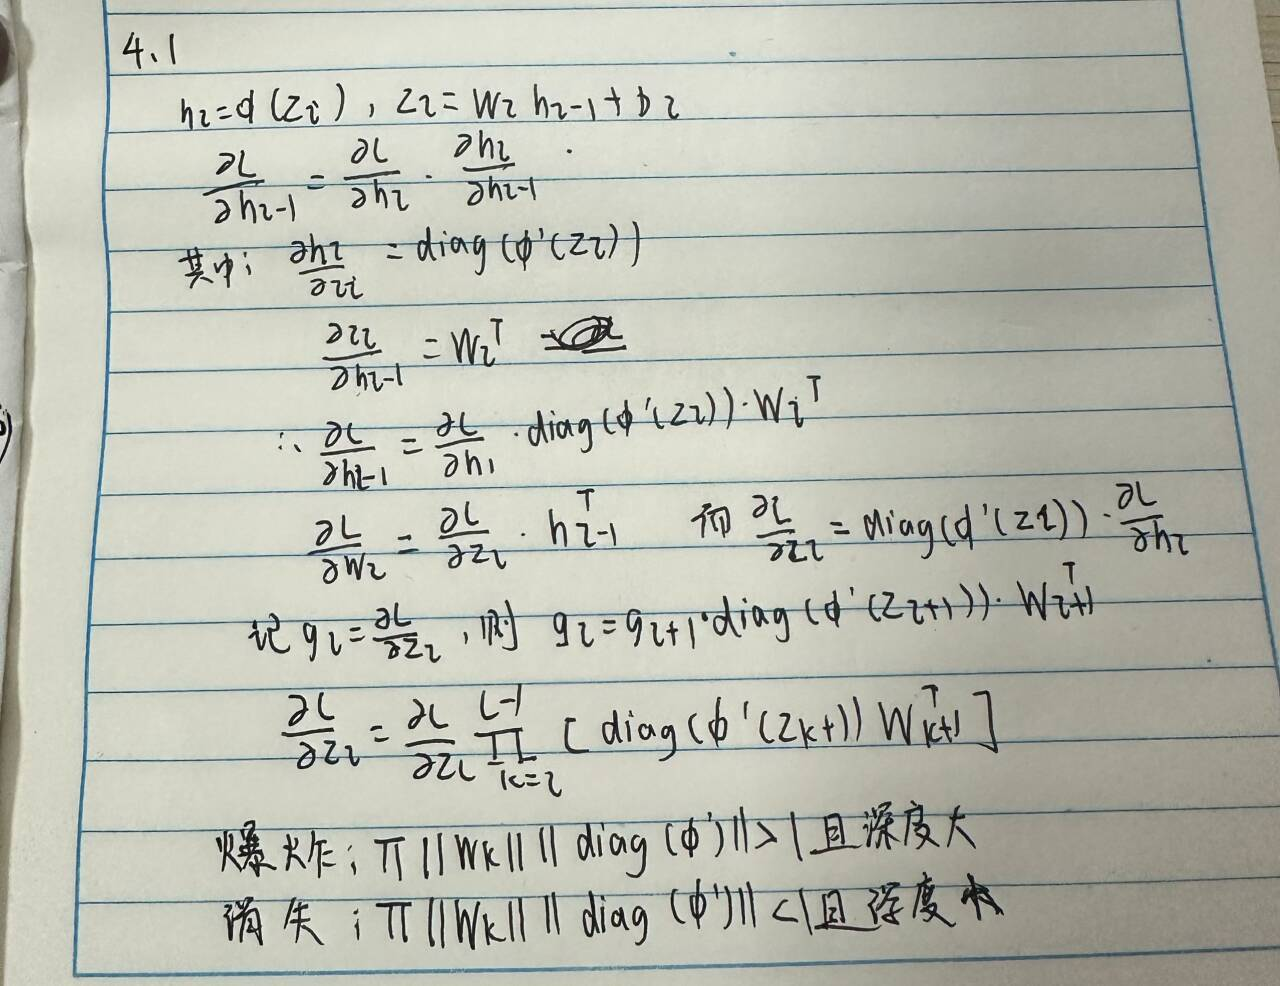 4.1
h_l = φ(z_l), z_l = W_l h_{l-1} + b_l
∂L/∂h_{l-1} = ∂L/∂h_l · ∂h_l/∂h_{l-1}
其中: ∂h_l/∂z_l = diag(φ'(z_l))
∂z_l/∂h_{l-1} = W_l^T
∴ ∂L/∂h_{l-1} = ∂L/∂h_1 · diag(φ'(z_l)) · W_l^T
∂L/∂W_l = ∂L/∂z_l · h_{l-1}^T 而 ∂L/∂z_l = diag(φ'(z_l)) · ∂L/∂h_l
记 g_l = ∂L/∂z_l, 则 g_l = g_{l+1} · diag(φ'(z_{l+1})) · W_{l+1}^T
∂L/∂z_l = ∂L/∂z_L ∏_{k=l}^{L-1} [diag(φ'(z_{k+})) W_{k+1}^T]
爆炸: π ||W_k|| || diag(φ')|| > 1 且深度大
消失: π ||W_k|| || diag(φ')|| < 1 且深度大